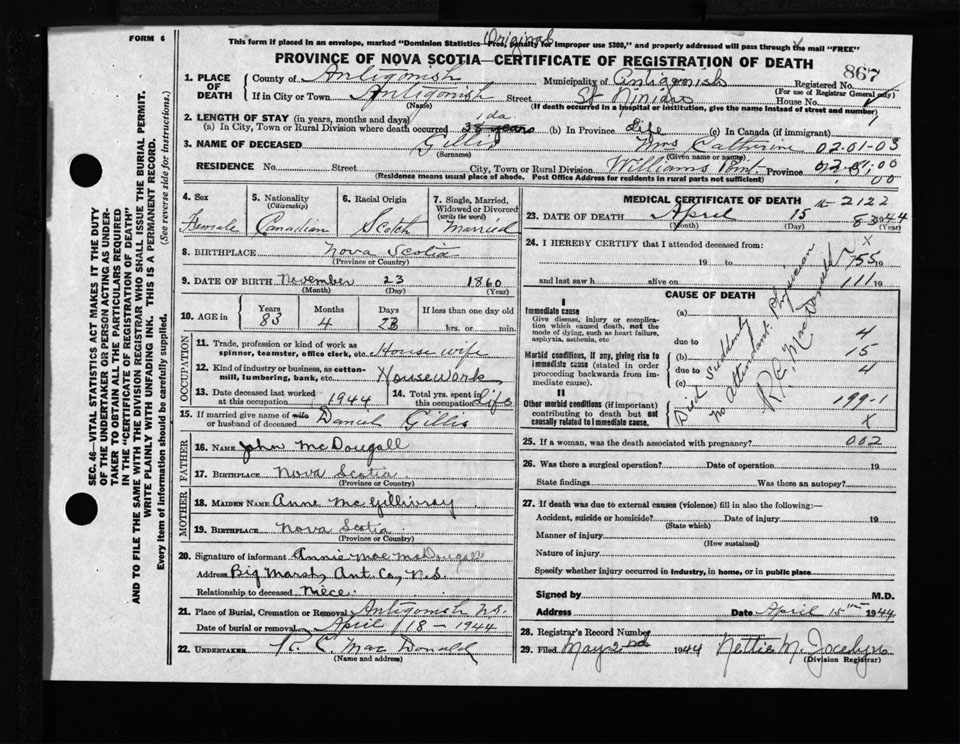 FORM 6
Original
This form if placed in an envelope, marked "Dominion Statistics—Free, penalty for improper use $300," and properly addressed will pass through the mail "FREE"
PROVINCE OF NOVA SCOTIA—CERTIFICATE OF REGISTRATION OF DEATH
867
1. PLACE OF DEATH
County of Antigonish Municipality of Antigonish Registered No.
(For use of Registrar General only)
If in City or Town Antigonish Street St Ninian House No.
(Name) (If death occurred in a hospital or institution, give the name instead of street and number)
2. LENGTH OF STAY (in years, months and days) 1 da
(a) In City, Town or Rural Division where death occurred (b) In Province Life (c) In Canada (if immigrant)
3. NAME OF DECEASED Gillis Mrs Catherine 02.01-03
(Surname) (Given name or names)
RESIDENCE No. Street City, Town or Rural Division Williams Point Province
(Residence means usual place of abode. Post Office Address for residents in rural parts not sufficient)
4. Sex Female
5. Nationality (Citizenship) Canadian
6. Racial Origin Scotch
7. Single, Married, Widowed or Divorced (write the word) Married
8. BIRTHPLACE Nova Scotia
(Province or Country)
9. DATE OF BIRTH November 23 1860
(Month) (Day) (Year)
10. AGE in Years 83 Months 4 Days 23 If less than one day old
hrs. or min.
OCCUPATION
11. Trade, profession or kind of work as spinner, teamster, office clerk, etc. House wife
12. Kind of industry or business, as cotton-mill, lumbering, bank, etc. Housework
13. Date deceased last worked at this occupation 1944
14. Total yrs. spent in this occupation life
15. If married give name of wife or husband of deceased Daniel Gillis
FATHER
16. NAME John McDougall
17. BIRTHPLACE Nova Scotia
(Province or Country)
MOTHER
18. MAIDEN NAME Anne McGillivray
19. BIRTHPLACE Nova Scotia
(Province or Country)
20. Signature of informant Annie Mae McDougall
Address Big Marsh, Ant. Co, N.S.
Relationship to deceased niece
21. Place of Burial, Cremation or Removal Antigonish N.S.
Date of burial or removal April 18 - 1944
22. UNDERTAKER R. C. MacDonald
(Name and address)
MEDICAL CERTIFICATE OF DEATH
2122
23. DATE OF DEATH April 15 44
(Month) (Day) (Year)
24. I HEREBY CERTIFY that I attended deceased from:
19 to 19
755
and last saw h alive on 19
111
CAUSE OF DEATH
I
Immediate cause (a)
Give disease, injury or complication which caused death, not the mode of dying, such as heart failure, asphyxia, asthenia, etc
due to 4
Morbid conditions, if any, giving rise to immediate cause (stated in order proceeding backwards from immediate cause).
(b) 15
due to 4
(c)
II
Other morbid conditions (if important) contributing to death but not causally related to immediate cause.
199-1
X
Died suddenly
no attendant Physician
R. C. MacDonald
25. If a woman, was the death associated with pregnancy? 002
26. Was there a surgical operation? Date of operation 19
State findings Was there an autopsy?
27. If death was due to external causes (violence) fill in also the following:
Accident, suicide or homicide? Date of injury 19
(State which)
Manner of injury
(How sustained)
Nature of injury
Specify whether injury occurred in industry, in home, or in public place
Signed by M.D.
Address Date April 15th 1944
28. Registrar's Record Number
29. Filed May 2nd 1944 Nettie M. Jocelyn
(Division Registrar)
SEC. 46—VITAL STATISTICS ACT MAKES IT THE DUTY
OF THE UNDERTAKER OR PERSON ACTING AS UNDER-
TAKER TO OBTAIN ALL THE PARTICULARS REQUIRED
IN THE "CERTIFICATE OF REGISTRATION OF DEATH"
AND TO FILE THE SAME WITH THE DIVISION REGISTRAR WHO SHALL ISSUE THE BURIAL PERMIT.
WRITE PLAINLY WITH UNFADING INK. THIS IS A PERMANENT RECORD.
Every item of information should be carefully supplied. (See reverse side for instructions.)